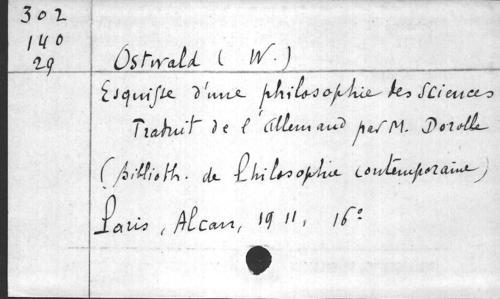 302
140
29
Ostwald ( W. )
Esquisse d'une philosophie des Sciences
Traduit de l'allemand par M. Dorolle
( Biblioth. de Philosophie contemporaine )
Paris, Alcan, 1911, 16°